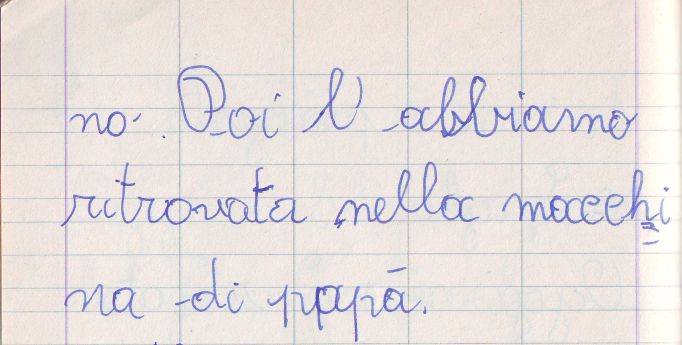 no. Poi l'abbiamo
ritrovata nella macchi
na di papà.